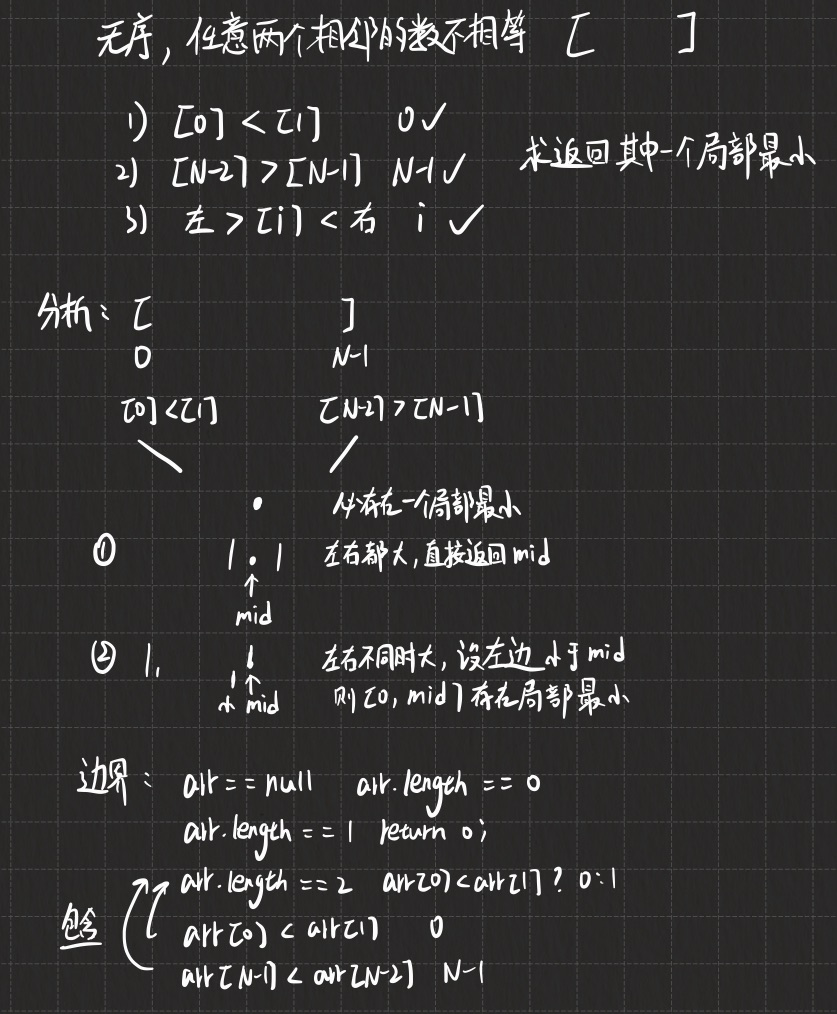 无序，任意两个相邻的数不相等 [ ]
1) [0] < [1] 0 ✓
2) [N-2] > [N-1] N-1 ✓
求返回其中一个局部最小
3) 左 > [i] < 右 i ✓
分析： [ ]
0 N-1
[0] < [1] [N-2] > [N-1]
必存在一个局部最小
① 左右都大，直接返回 mid
mid
② 左右不同时大，设左边小于 mid
小 mid 则 [0, mid] 存在局部最小
边界： arr == null arr.length == 0
arr.length == 1 return 0;
arr.length == 2 arr[0] < arr[1] ? 0 : 1
包含 arr[0] < arr[1] 0
arr[N-1] < arr[N-2] N-1